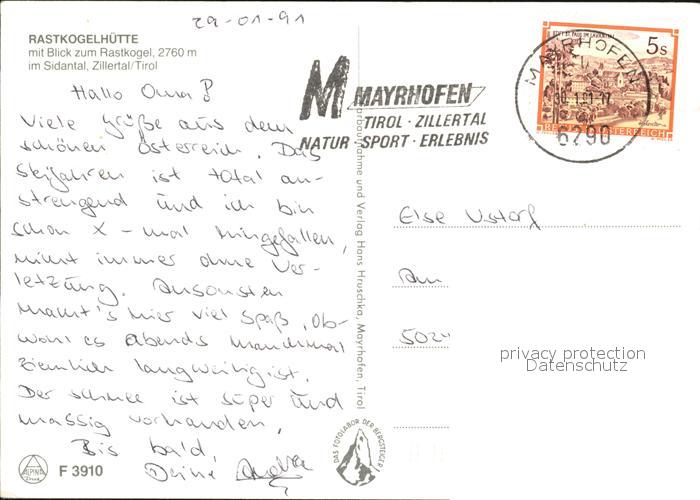 29-01-91
RASTKOGELHÜTTE
mit Blick zum Rastkogel, 2760 m
im Sidantal, Zillertal/Tirol
Hallo Oma!
Viele Grüße aus dem
schönen Österreich. Das
Skifahren ist total an-
strengend und ich bin
schon X-mal hingefallen,
nicht immer ohne Ver-
letzung. Ansonsten
macht's hier viel Spaß, Ob-
wohl es abends manchmal
ziemlich langweilig ist.
Der schnee ist super und
massig vorhanden.
Bis bald,
Deine
ALPINA
Druck
F 3910
M MAYRHOFEN
TIROL · ZILLERTAL
NATUR · SPORT · ERLEBNIS
Farbaufnahme und Verlag Hans Hruschka, Mayrhofen, Tirol
DAS FOTOLABOR DER BERGSTEIGER
STIFT ST. PAUL IM LAVANTTAL
5s
REPUBLIK ÖSTERREICH
MAYRHOFEN
6290
Else Ustorf
Am
502
privacy protection
Datenschutz